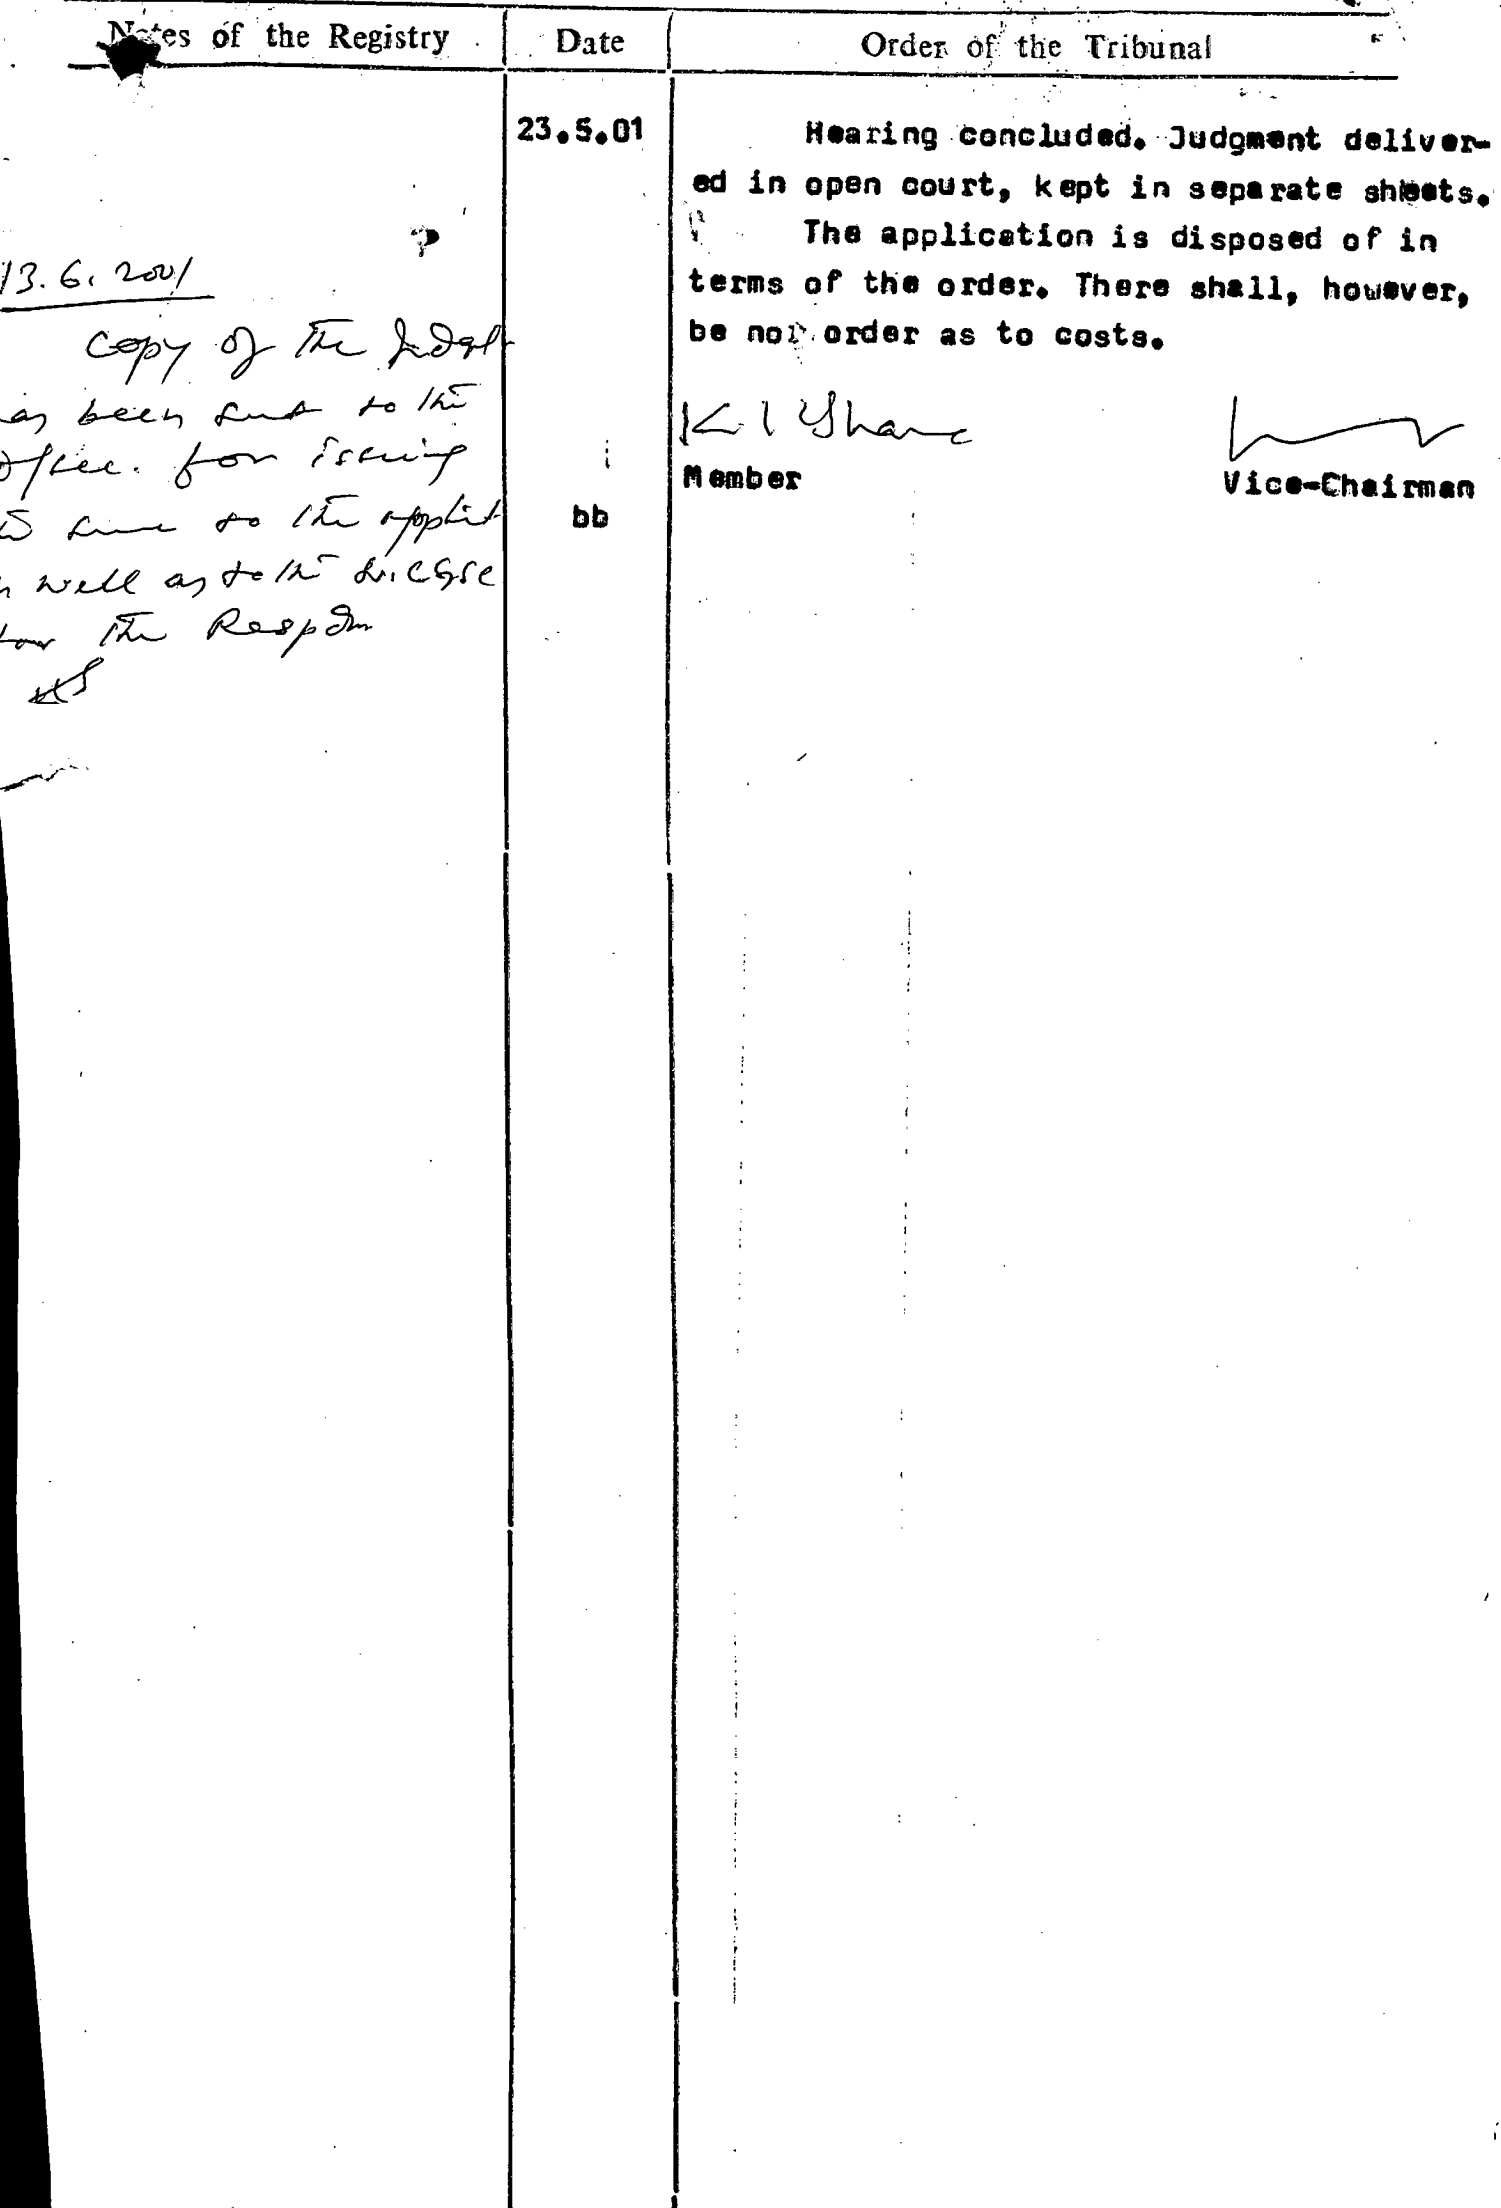 Notes of the Registry
Date
Order of the Tribunal
13.6.2001
Copy of the Judgt
as been sent to the
Office. for issuing
same to the applict
well as to the
for the Respdn
23.5.01
bb
Hearing concluded. Judgment deliver-
ed in open court, kept in separate sheets.
The application is disposed of in
terms of the order. There shall, however,
be no order as to costs.
Member
Vice-Chairman